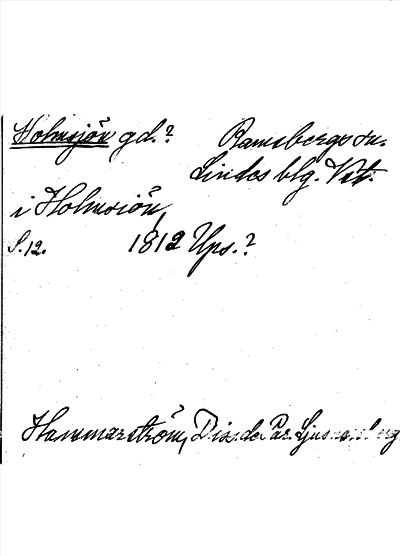 Holmsjön gd.? Ramsbergs sn.
Lindes blg. Vstm.
i Holmsiön,
S. 12. 1812 Ups.?
Hammarström, Diss. de Par. Ljusnarsberg